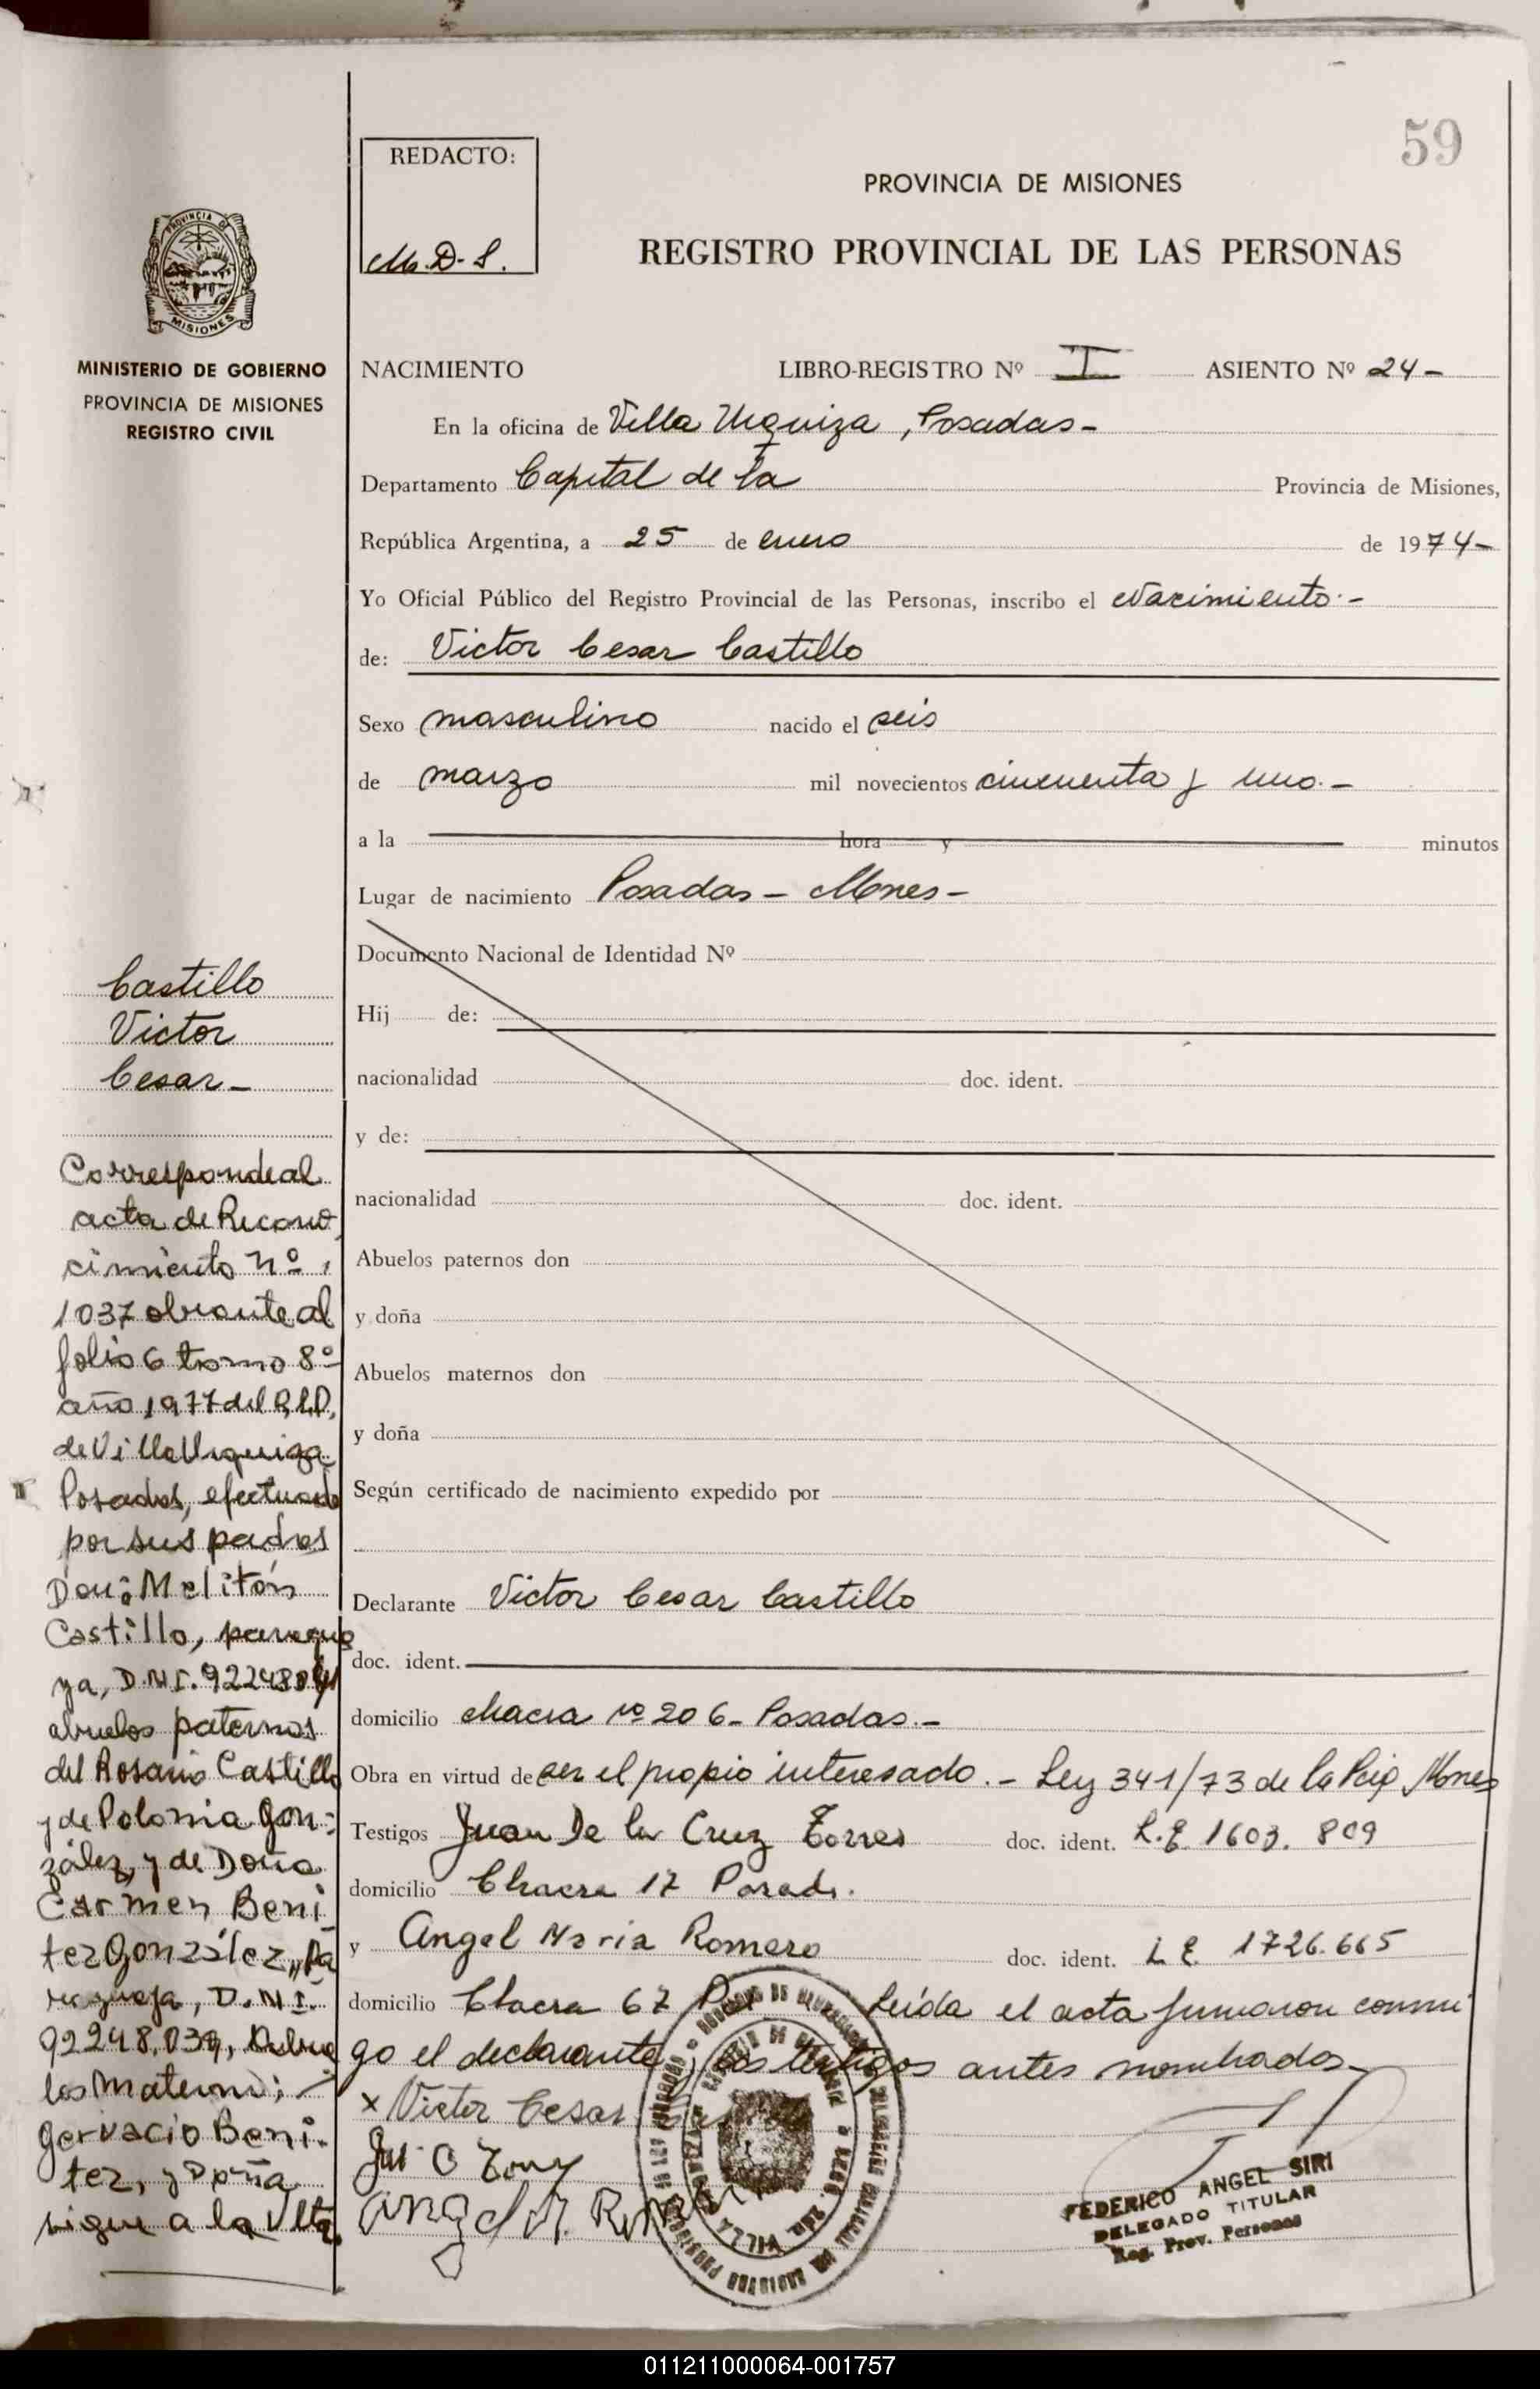 59
REDACTO:
M.D.S.
PROVINCIA DE MISIONES
REGISTRO PROVINCIAL DE LAS PERSONAS
PROVINCIA DE
MISIONES
MINISTERIO DE GOBIERNO
PROVINCIA DE MISIONES
REGISTRO CIVIL
NACIMIENTO LIBRO-REGISTRO Nº I ASIENTO Nº 24-
En la oficina de Villa Urquiza, Posadas-
Departamento Capital de la Provincia de Misiones,
República Argentina, a 25 de enero de 1974-
Yo Oficial Público del Registro Provincial de las Personas, inscribo el Nacimiento.-
de: Victor Cesar Castillo
Sexo masculino nacido el seis
de marzo mil novecientos cincuenta y uno.-
a la hora y minutos
Lugar de nacimiento Posadas - Mnes-
Documento Nacional de Identidad Nº
Hij de:
nacionalidad doc. ident.
y de:
nacionalidad doc. ident.
Abuelos paternos don
y doña
Abuelos maternos don
y doña
Según certificado de nacimiento expedido por
Declarante Victor Cesar Castillo
doc. ident.
domicilio chacra Nº 206- Posadas.-
Obra en virtud de ser el propio interesado.- Ley 341/73 de la Pcia Mnes
Testigos Juan De la Cruz Torres doc. ident. L.E. 1603.809
domicilio Chacra 17 Posads.
y Angel Maria Romero doc. ident. L E 1726.665
domicilio Chacra 67 Leída el acta firmaron conmi
go el declarante y los testigos antes nombrados-
x Victor Cesar
Angel M. Romero
FEDERICO ANGEL SIRI
DELEGADO TITULAR
Reg. Prov. Personas
Castillo
Victor
Cesar-
Corresponde al
acta de Recono
cimiento Nº
1037 obrante al
folio 6 tomo 8º
año 1977 del
de Villa Urquiza
Posadas, efectuado
por sus padres
Don: Melitón
Castillo, paragua
ya, D.N.I.
abuelos paternos
del Rosario Castillo
y de Polonia Gon-
zález, y de Doña
Carmen Beni
tez González, pa
raguaya, D.N.I.
92248.039, Abue
los maternos:
Gervacio Beni-
tez, y Doña
sigue a la Vlta.
011211000064-001757